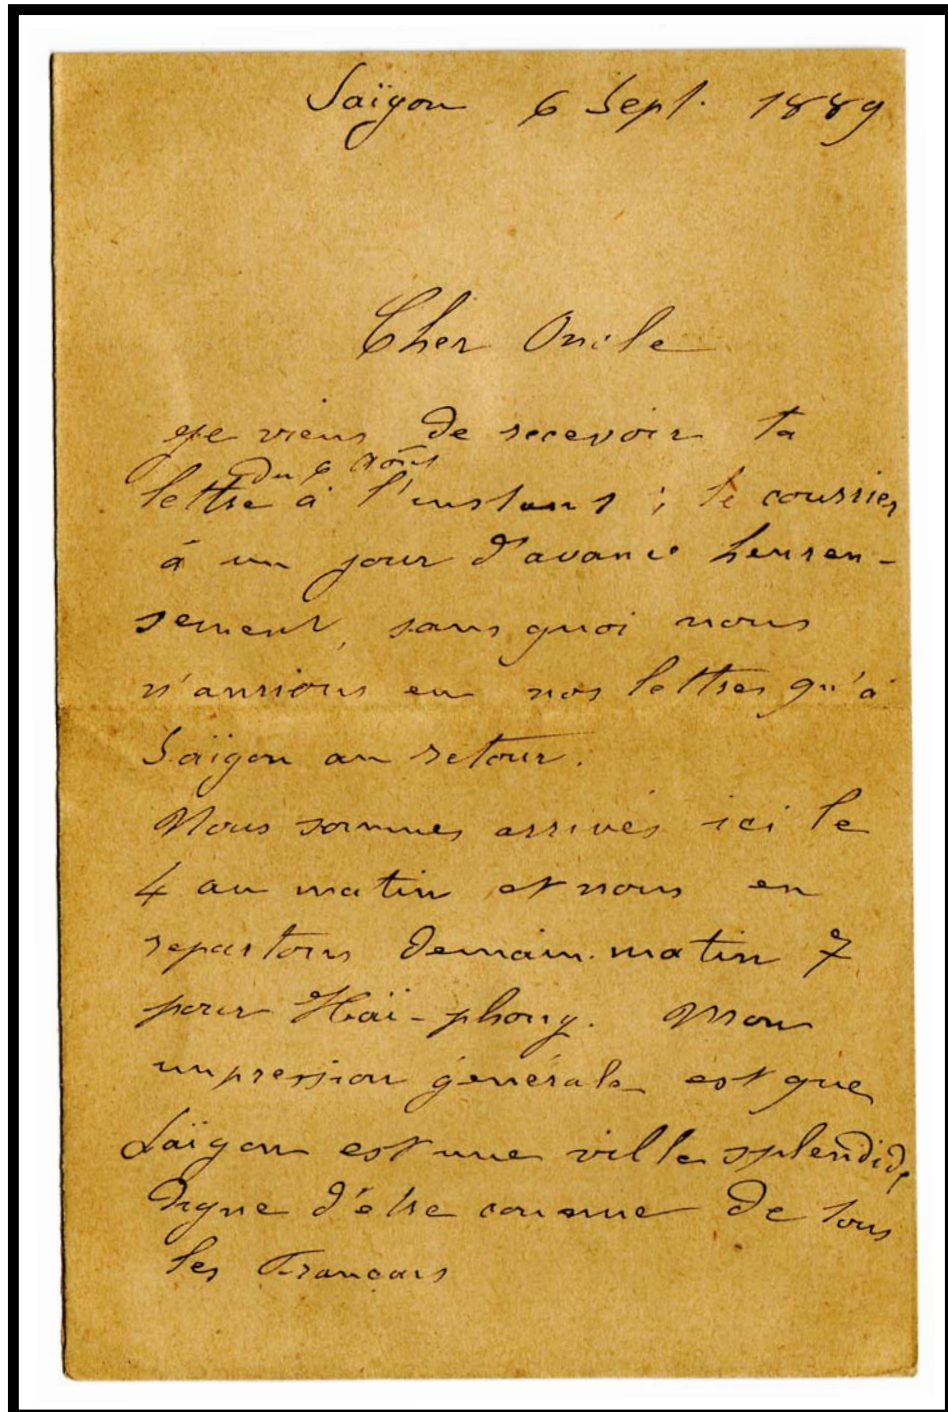 Saïgon 6 Sept. 1889
Cher Oncle
Je viens de recevoir ta
du 6 Août
lettre à l'instant ; le courrier
à un jour d'avance heureu-
sement, sans quoi nous
n'aurions eu nos lettres qu'à
Saïgon au retour.
Nous sommes arrivés ici le
4 au matin et nous en
repartons demain matin 7
pour Haï-phong. Mon
impression générale est que
Saïgon est une ville splendide
digne d'être connue de tous
les Français